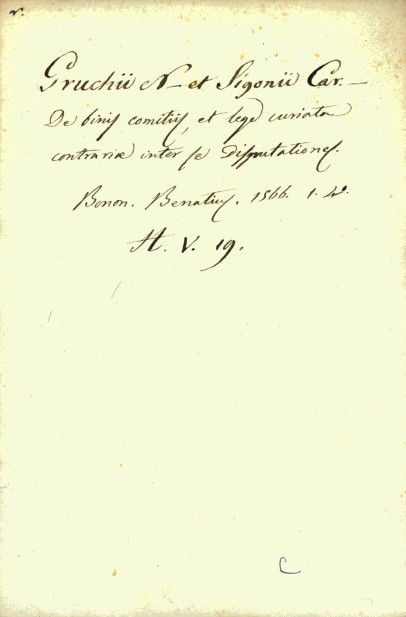 v.
Gruchii N– et Sigonii Car.–
De binis comitiis, et lege curiata
contrariæ inter se Disputationes.
Bonon. Benatius. 1566. 1. 4°.
H. V. 19.
C